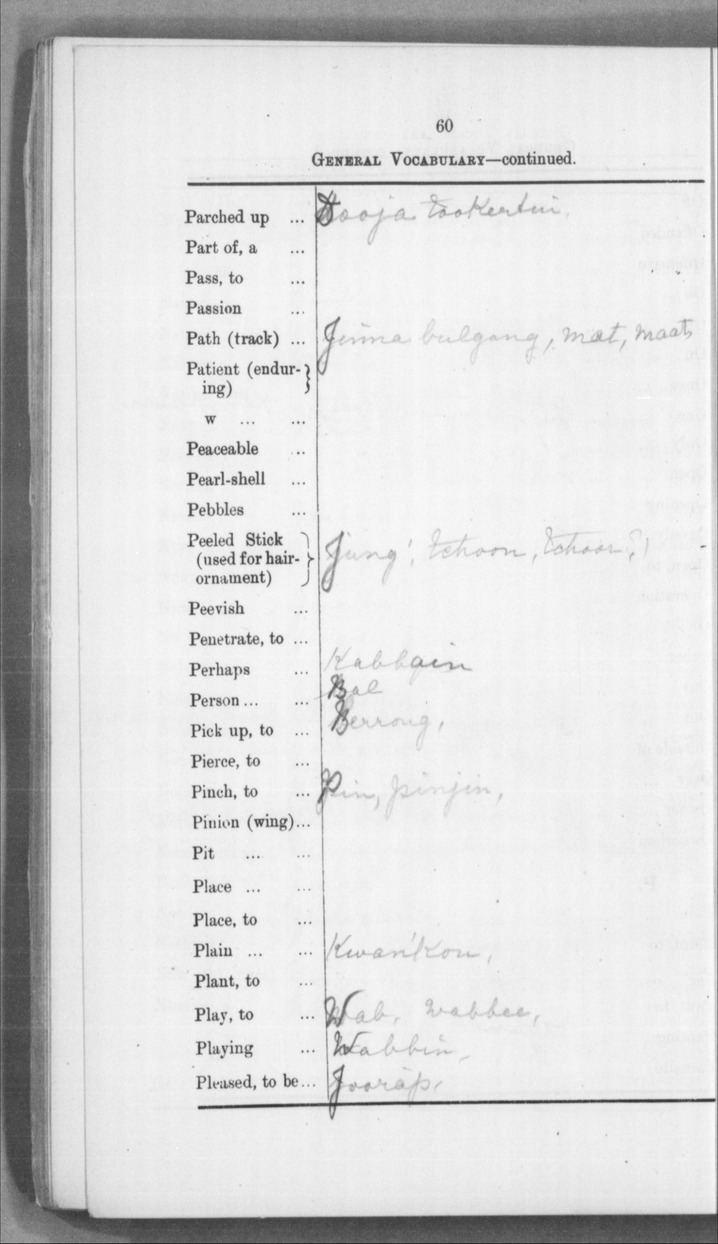 60
GENERAL VOCABULARY—continued.
Parched up ... Dooja tookertin,
Part of, a ...
Pass, to ...
Passion ...
Path (track) ... Jinna bulgang, mat, maat,
Patient (endur-
ing)
w ... ...
Peaceable ..
Pearl-shell ...
Pebbles ...
Peeled Stick
(used for hair- Jung', tchoon, tchoor,?
ornament)
Peevish ...
Penetrate, to ...
Perhaps ... Kabbain
Person ... ... Bal
Pick up, to ... Berrong,
Pierce, to ...
Pinch, to ... Pin, pinjin,
Pinion (wing)...
Pit ... ...
Place ... ...
Place, to ...
Plain ... ... Kwan'kon,
Plant, to ...
Play, to ... Wab, wabbee,
Playing ... Wabbin,
Pleased, to be ... Joorap,